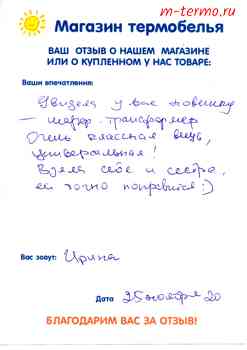 m-termo.ru
Магазин термобелья
ВАШ ОТЗЫВ О НАШЕМ МАГАЗИНЕ
ИЛИ О КУПЛЕННОМ У НАС ТОВАРЕ:
Ваши впечатления:
Увидела у вас новинку
– шарф-трансформер
Очень классная вещь,
универсальная!
Взяла себе и сестре,
ей точно понравится :)
Вас зовут: Ирина
Дата 25 ноября 20
БЛАГОДАРИМ ВАС ЗА ОТЗЫВ!